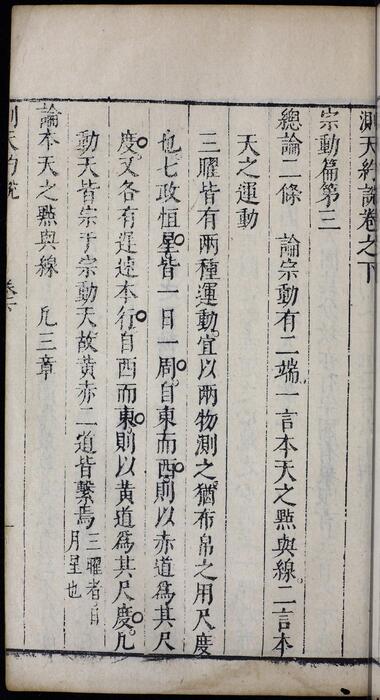 測天約說卷之下
宗動篇第三
總論二條　論宗動有二端一言本天之點與線二言本
天之運動
三曜皆有兩種運動宜以兩物測之猶布帛之用尺度
也七政恒星皆一日一周自東而西則以赤道爲其尺
度又各有遲速本行自西而東則以黃道爲其尺度凡
動天皆宗于宗動天故黃赤二道皆繫焉三曜者日
月星也
論本天之點與線　凡三章